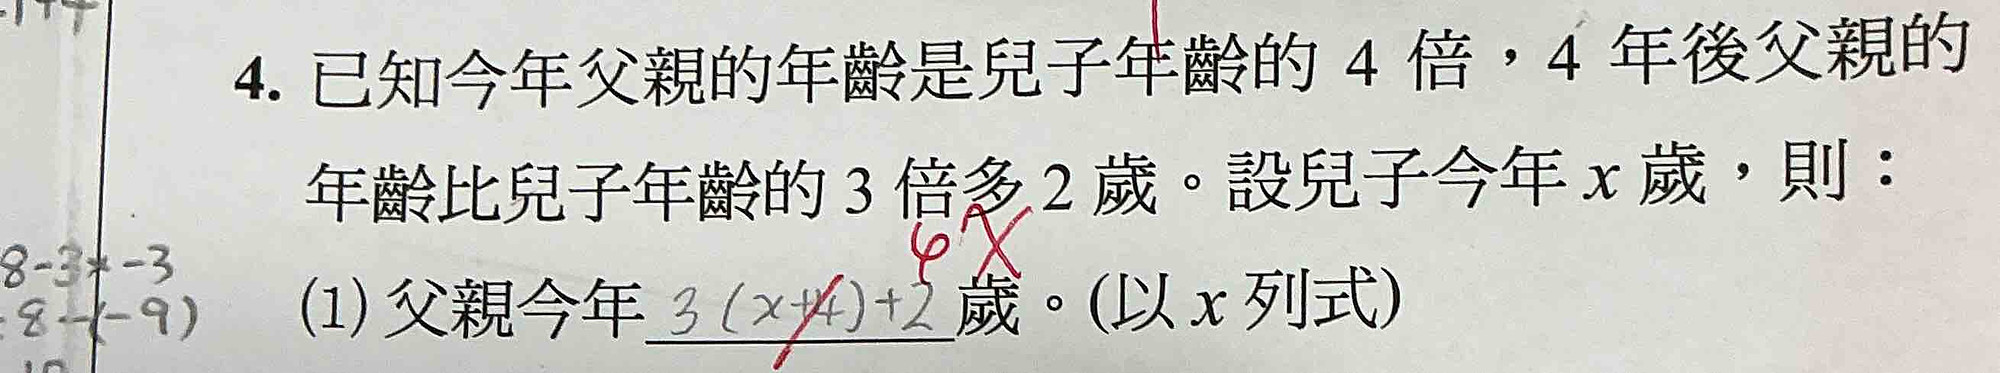 4. 已知今年父親的年齡是兒子年齡的 4 倍，4 年後父親的
年齡比兒子年齡的 3 倍多 2 歲。設兒子今年 x 歲，則：
(1) 父親今年 3(x+4)+2 歲。(以 x 列式)
8-3x-3
8-(-9)